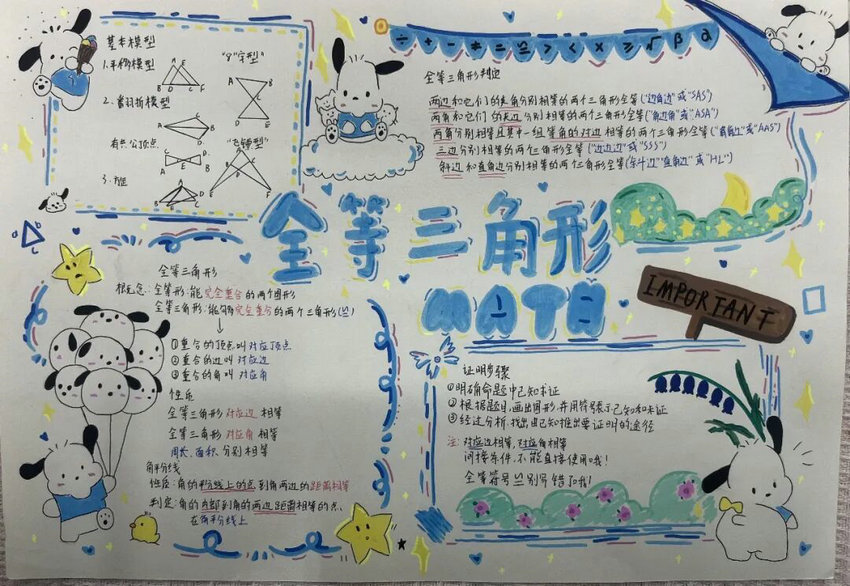 基本模型
1.平移模型
A D
B E C F
"8"字型
A B
C D
2.翻折模型
有公共顶点
"飞镖型"
3.
÷ + - ≠ = ≌ > < × ≥ √ β α
全等三角形判定
两边和它们的夹角分别相等的两个三角形全等("边角边"或"SAS")
两角和它们的夹边分别相等的两个三角形全等("角边角"或"ASA")
两角分别相等且其中一组等角的对边相等的两个三角形全等("角角边"或"AAS")
三边分别相等的两个三角形全等("边边边"或"SSS")
斜边和直角边分别相等的两个三角形全等("斜边""直角边"或"HL")
全等三角形
MATH
IMPORTANT
a b c
全等三角形
概念:全等形:能完全重合的两个图形
全等三角形:能够完全重合的两个三角形(≌)
↓
①重合的顶点叫对应顶点
②重合的边叫对应边
③重合的角叫对应角
性质
全等三角形对应边相等
全等三角形对应角相等
周长、面积分别相等
角平分线
性质:角的平分线上的点到角两边的距离相等
判定:角的内部到角的两边距离相等的点
在角平分线上
证明步骤
①明确命题中已知求证
②根据题目,画出图形,并用符号表示已知和求证
③经过分析,找出由已知推出要证明的途径
注:对应边相等,对应角相等
间接条件,不能直接使用哦!
全等符号≌别写错了哦!